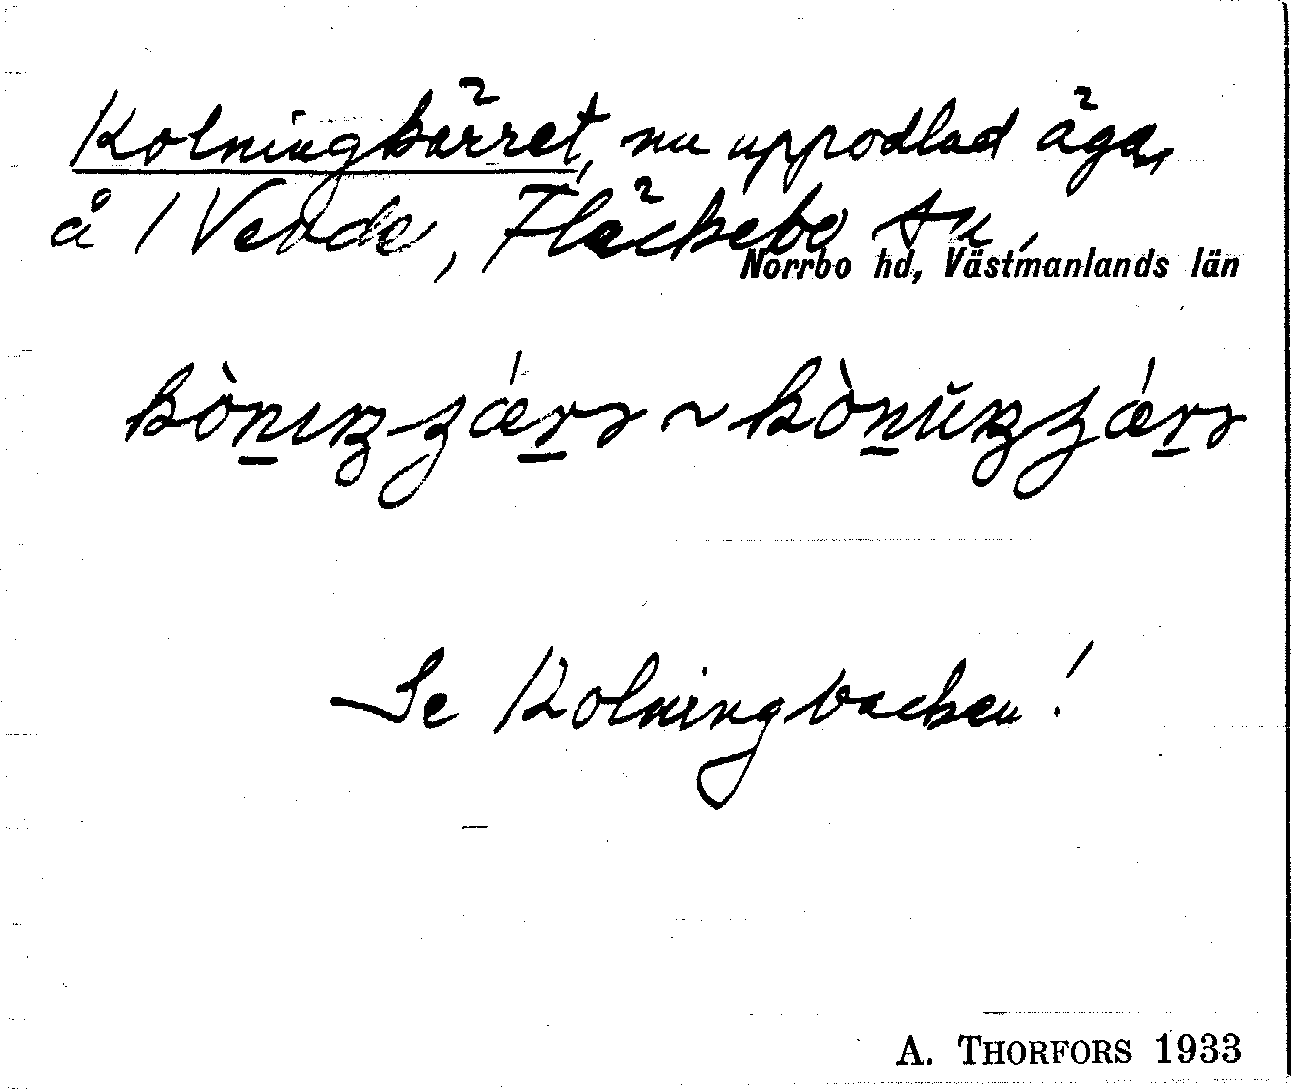 Kolningkärret, nu uppodlad äga,
å 1 Vende, Fläckebo sn,
Norrbo hd, Västmanlands län
Se Kolningbacken!
A. THORFORS 1933